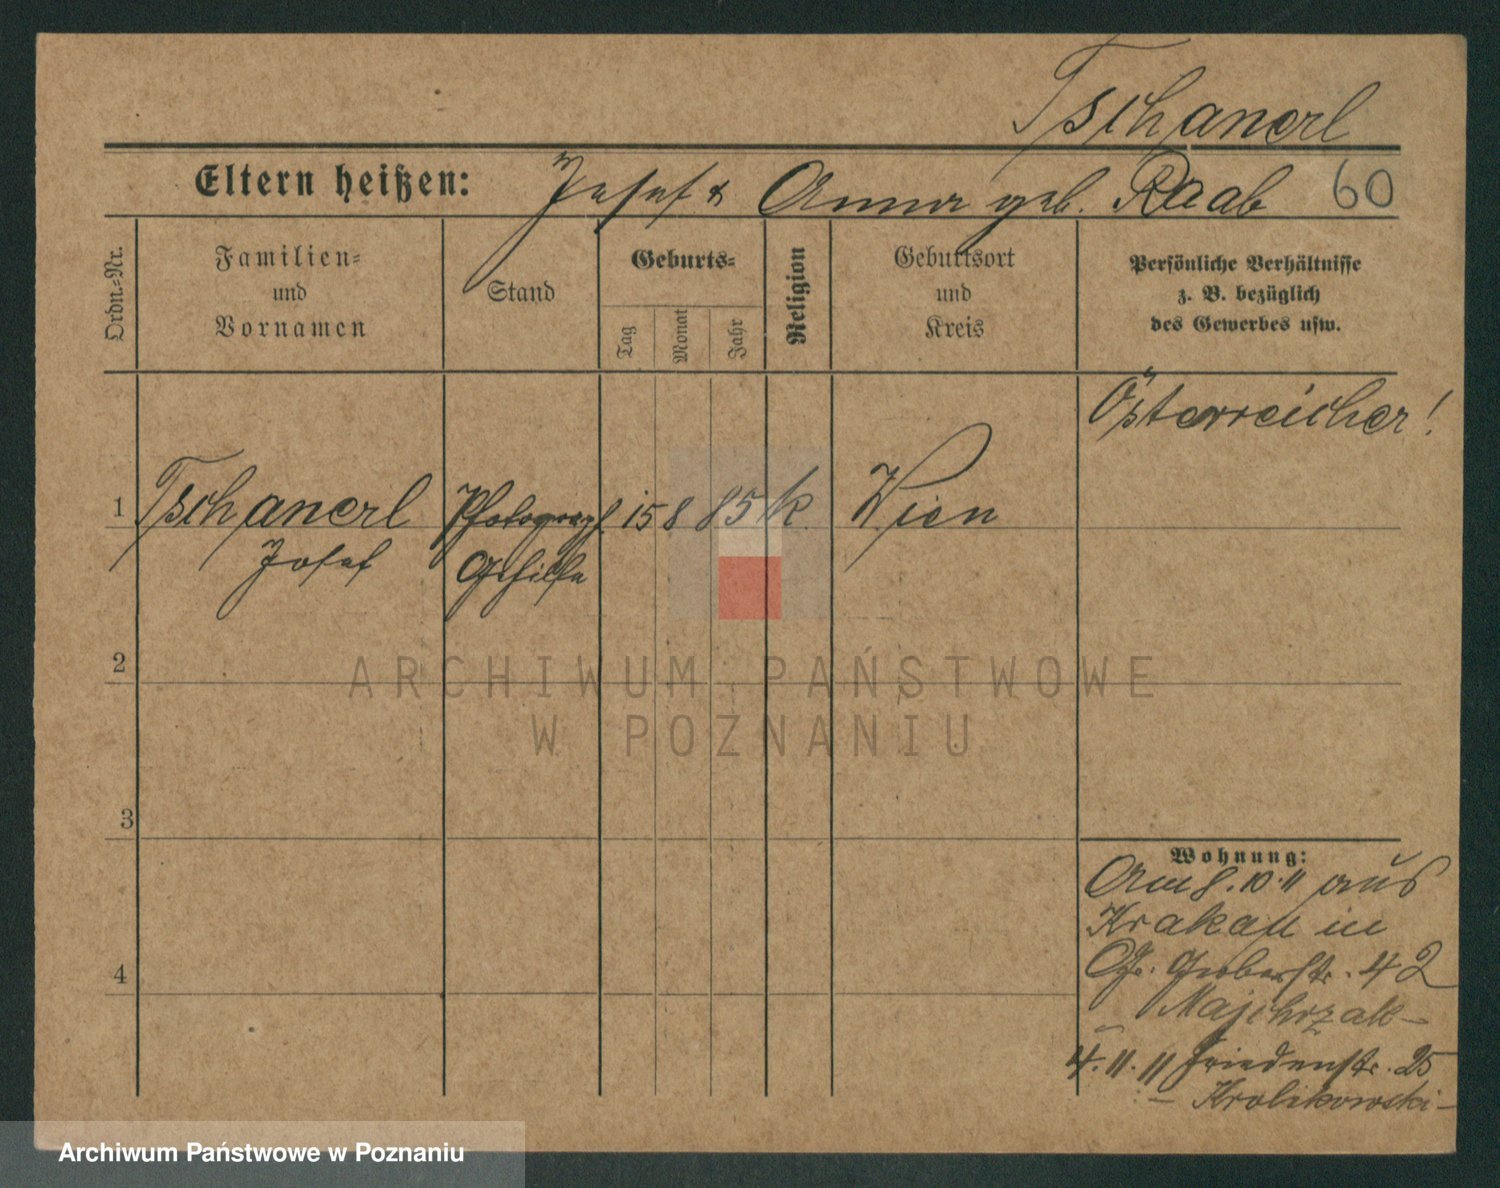 Tschanerl
Eltern heißen: Josef & Anna geb. Raab 60
Ordn.-Nr.
Familien-
und
Vornamen
Stand
Geburts-
Tag
Monat
Jahr
Religion
Geburtsort
und
Kreis
Persönliche Verhältnisse
z. B. bezüglich
des Gewerbes usw.
Österreicher!
1 Tschanerl Photograph 15 8 85 k Wien
Josef Gehilfe
2
3
4
Wohnung:
10.11 aus
Krakau in
Gr. Gerberstr. 42
Majchrzak-
4.11.11 Friedenstr. 25
- Krolikowski-
ARCHIWUM PAŃSTWOWE
W POZNANIU
Archiwum Państwowe w Poznaniu